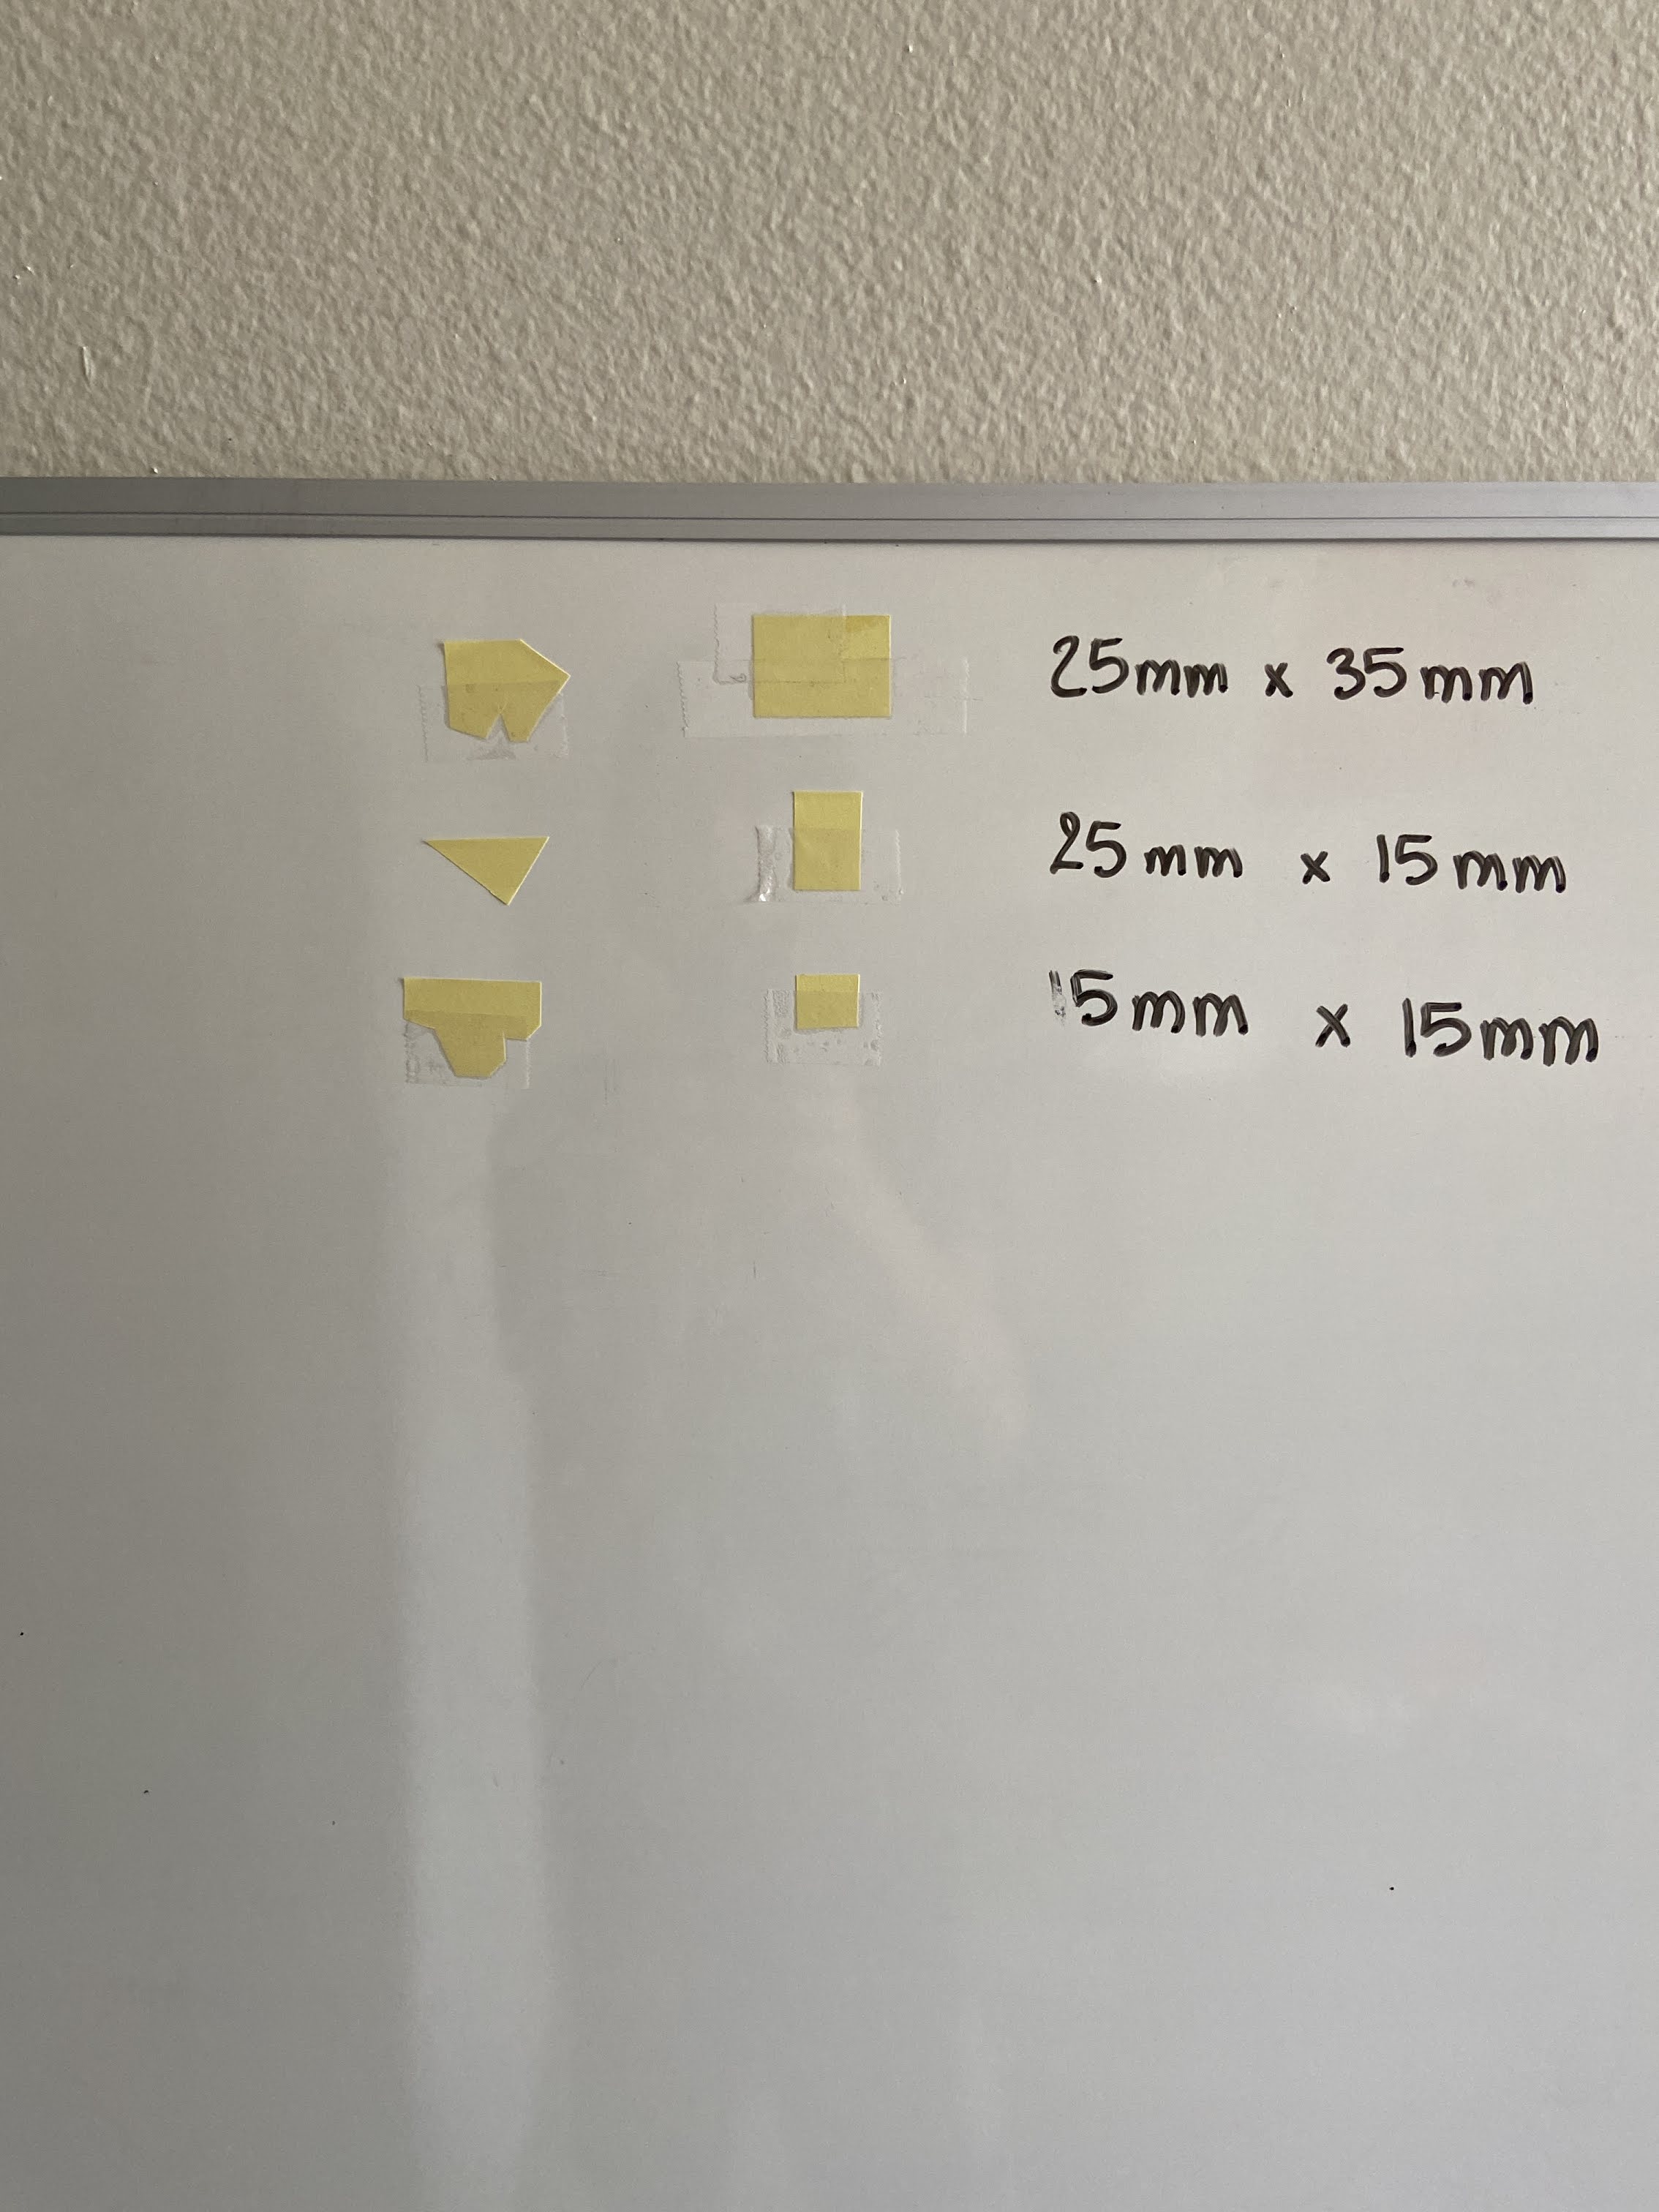 25mm x 35mm
25mm x 15mm
15mm x 15mm